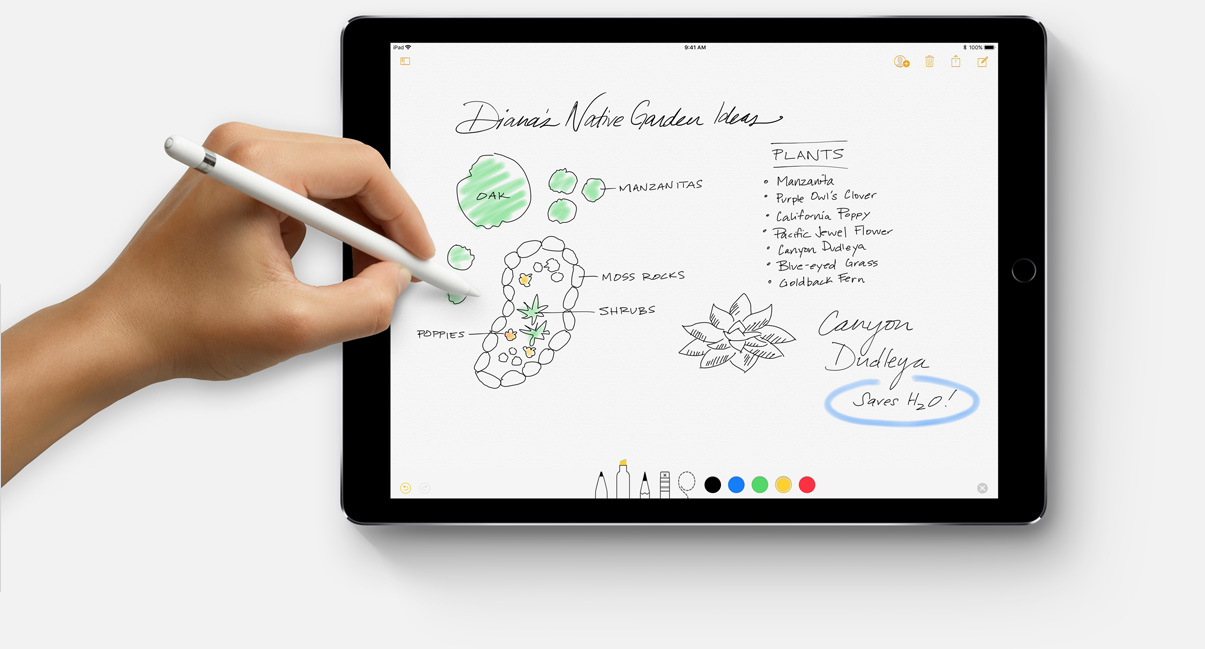 iPad
9:41 AM
100%
Diana's Native Garden Ideas
OAK
MANZANITAS
MOSS ROCKS
SHRUBS
POPPIES
PLANTS
• Manzanita
• Purple Owl's Clover
• California Poppy
• Pacific Jewel Flower
• Canyon Dudleya
• Blue-eyed Grass
• Goldback Fern
Canyon
Dudleya
Saves H₂O!